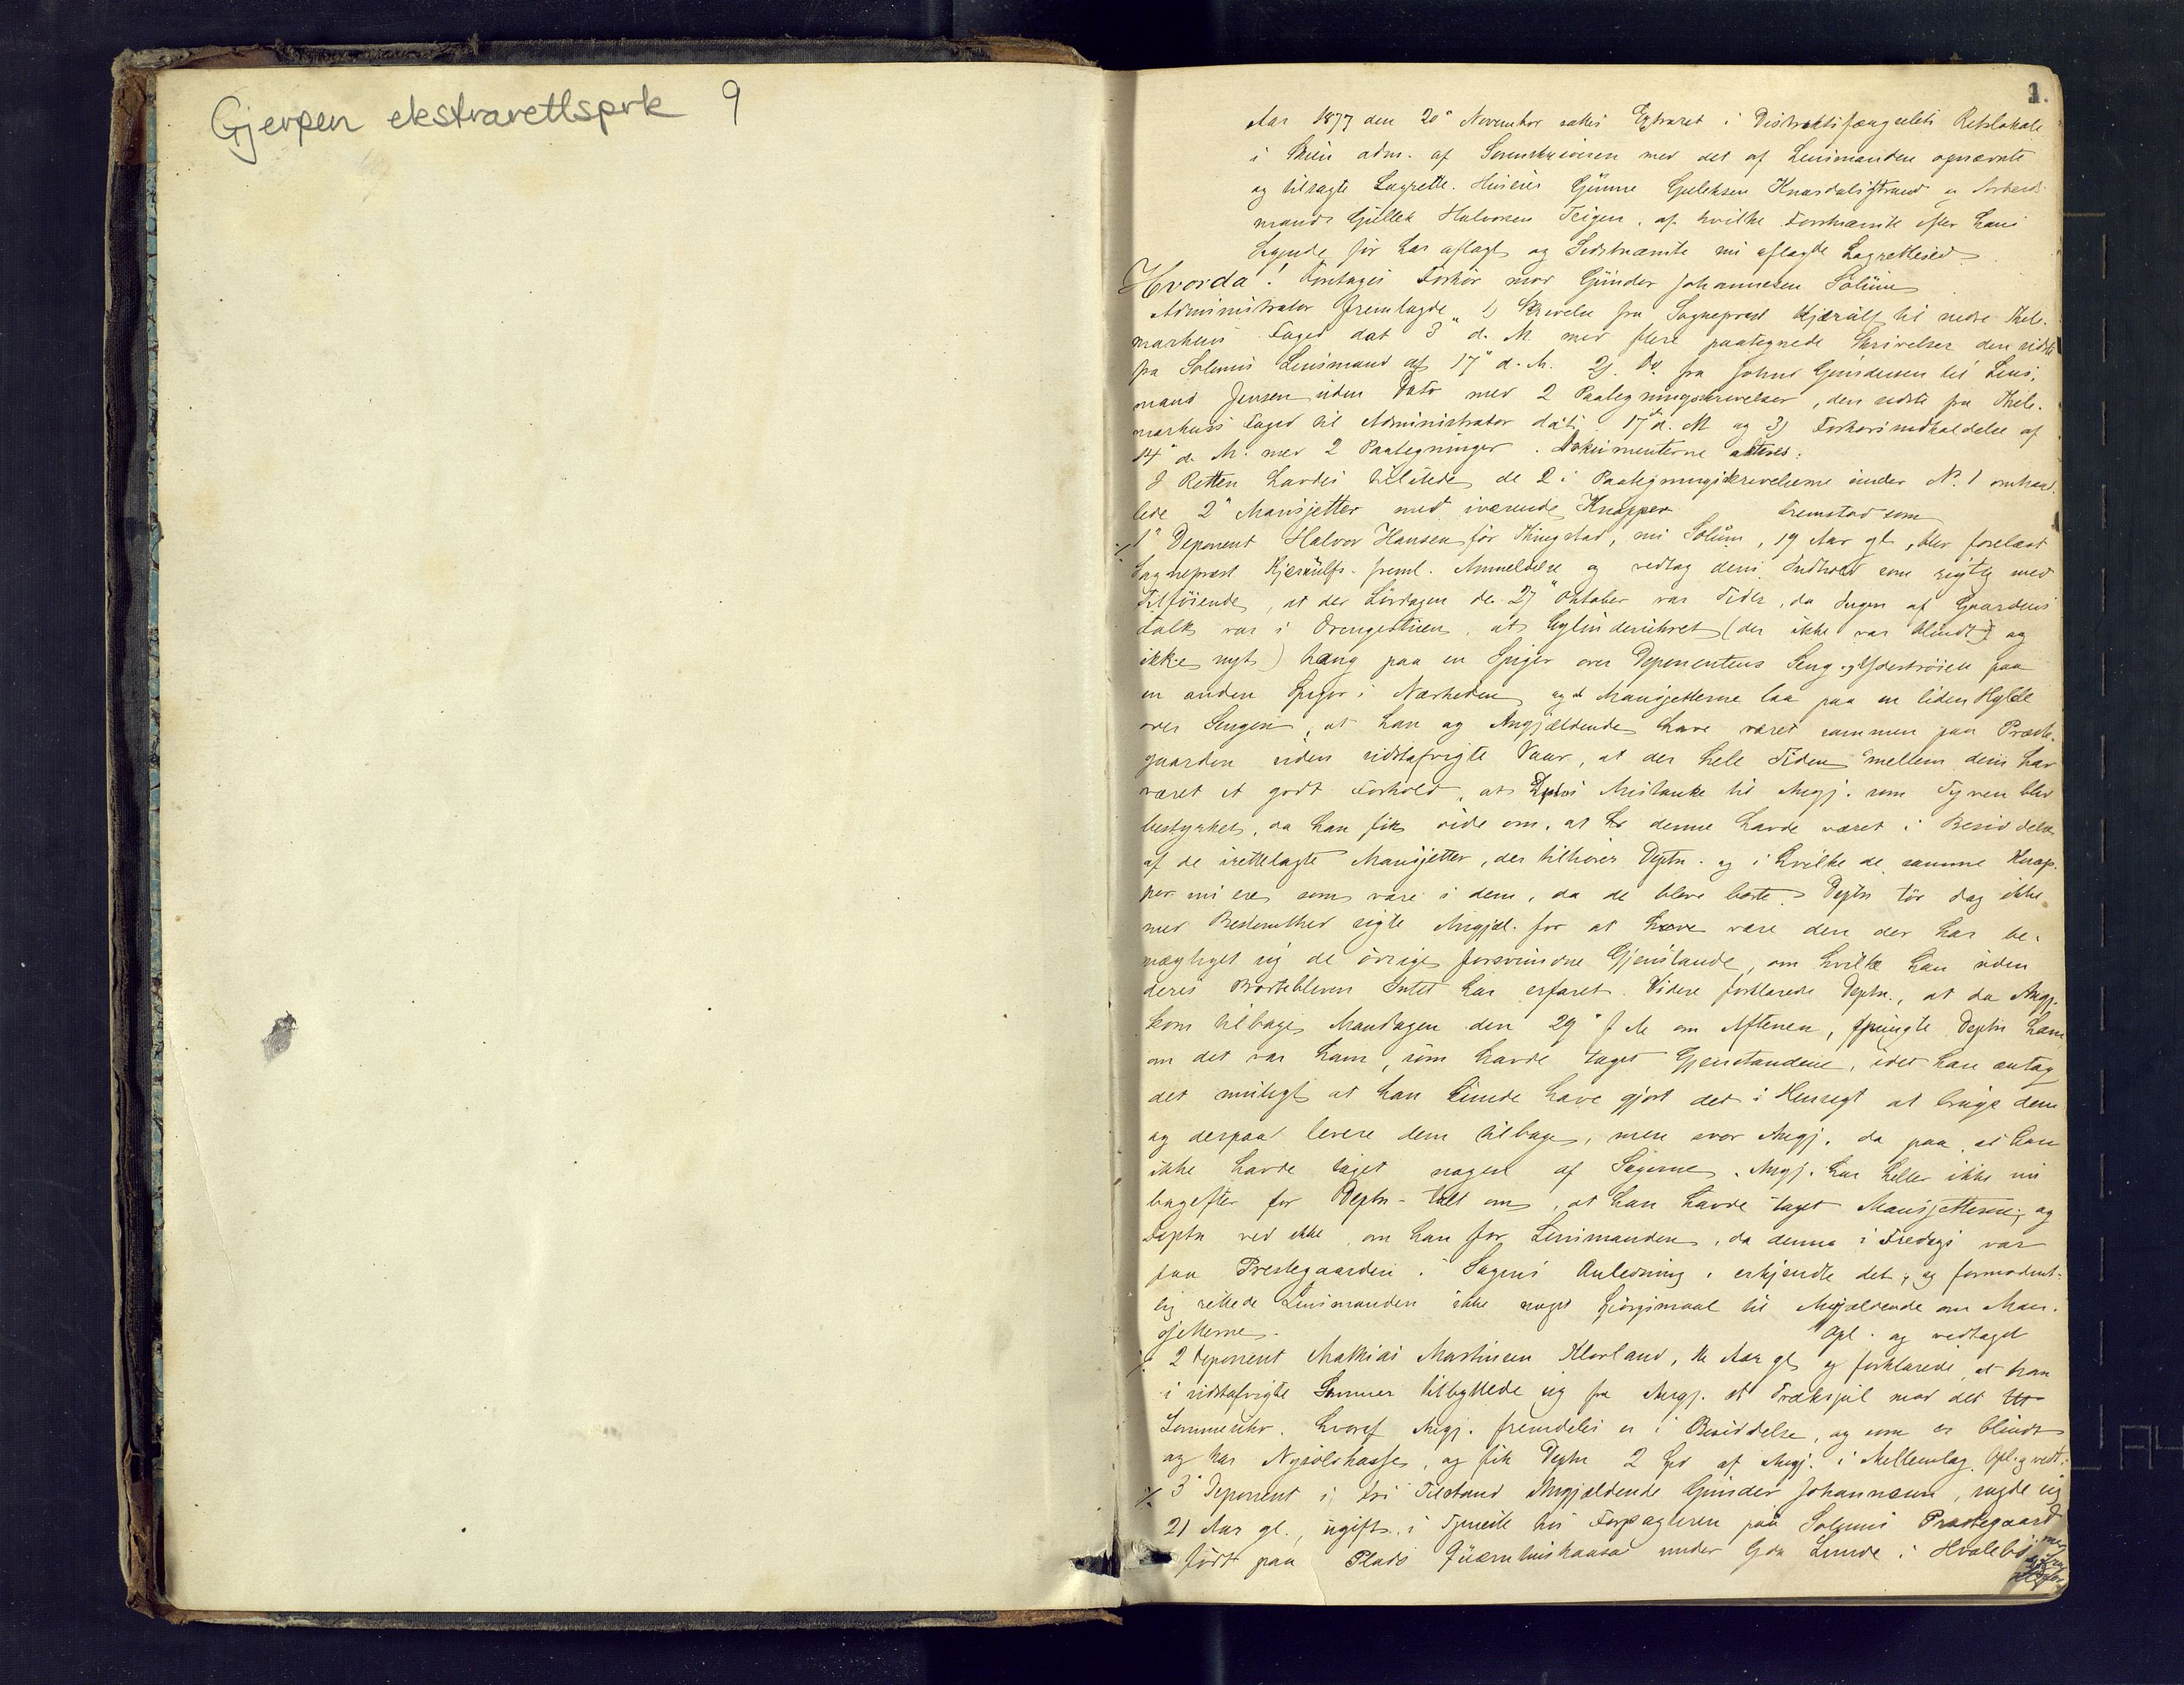 Gjerpen ekstrarettsprk 9
1.
Aar 1877 den 20de November sattes Extraret i Distriktsfængselets Retslokale
i Skien adm. af Sorenskriveren med det af Lensmanden opnævnte
og tilsagte Lagrette. Huseier Gunne Gulleksen Knardalsstrand og Arbeids-
mand Gullek Halvorsen Teigen, af hvilke Førstnævnte efter hans
Sigende før har aflagt og Sidstnævnte nu aflagde Lagretteed.
Hvorda! Foretoges Forhør mod Gunder Johannesen Solum
Administrator fremlagde 1) Skrivelse fra Sogneprest Kjerulf til nedre Thele-
markens Foged dat 3 d. M. med flere paategnede Skrivelser den sidste
fra Solums Lensmand af 17 d. M. 2) Do fra John Gundersen til Lens-
mand Jensen uden Dato med 2 Paategningsskrivelser, den sidste fra Thele-
markens Foged til Administrator dat. 17 d. M. og 3) Forhørsindkaldelse af
14 d. M. med 2 Paategninger. Dokumenterne akteres.
I Retten havdes tilstede de 2 i Paategningsskrivelserne under No. 1 omhand-
lede 2 Mansjetter med iværende Knapper Fremstod som
1ste Deponent Halvor Hansen før Ringstad, nu Solum, 19 Aar gl, blev forelæst
Sogneprest Kjerulfs freml. Anmeldelse og vedtog dens Indhold som rigtig med
Tilføiende, at der Lørdagen de 27 Oktober var Tider, da Ingen af Gaardens
Folk var i Drengestuen, at Cylinderuhret (der ikke var blindt og
ikke nyt) hang paa en Spiger over Deponentens Seng, Ydertrøien paa
en anden Spiger i Nærheden og at Mansjetterne laa paa en liden Hylde
over Sengen, at han og Angjældende have været sammen paa Preste-
gaarden siden sidstafvigte Vaar, at der hele Tiden mellem dem har
været et godt Forhold, at Deptns Mistanke til Angj. som Tyven blev
bestyrket, da han fik vide om, at denne havde været i Besiddelse
af de irettelagte Mansjetter, der tilhører Deptn. og i hvilke de samme Knap-
per nu ere som vare i dem, da de bleve borte. Deptn tør dog ikke
med Bestemthed sigte Angjæl. for at være den der har be-
mægtiget sig de øvrige forsvundne Gjenstande, om hvilke han siden
deres Bortebliven Intet har erfaret. Videre forklarede Deptn., at da Angj.
kom tilbage Mandagen den 29 f M om Aftenen, spurgte Deptn ham
om det var ham, som havde taget Gjenstandene, idet han antog
det muligt at han kunde have gjort det i Hensigt at bruge dem
og derpaa levere dem tilbage, men svor Angj. da paa at han
ikke havde taget nogen af Sagerne. Angj. har heller ikke nu
bagefter for Deptn talt om, at han havde taget Mansjetterne, og
Deptn ved ikke, om han for Lensmanden, da denne i Fredags var
paa Prestegaarden i Sagens Anledning, erkjendte det, og formodent-
lig rettede Lensmanden ikke noget Spørgsmaal til Angjældende om Man-
sjetterne. Opl. og vedtaget
2 Deponent Mathias Martinsen Klovland, Aar gl og forklarede, at han
i sidstafvigte Sommer tilbyttede sig fra Angj. et Trækspil mod det
Lommeuhr, hvoraf Angj. fremdeles er i Besiddelse, og som er blindt
og har Nysølvkasse, og fik Deptn 2 Spd af Angj. i Mellemlag. Opl. og vedt.
3 Deponent i fri Tilstand Angjældende Gunder Johannesen, sagde sig
21 Aar gl., ugift, i Tjeneste hos Forpagteren paa Solums Prestegaard
født paa Plads under Gdn Lunde i